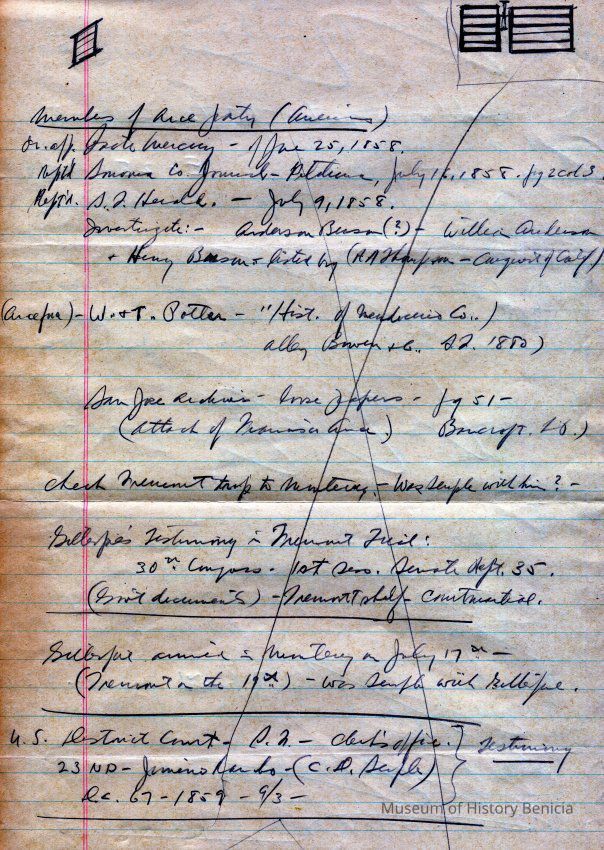 members of Arce party (American)
or. opp. State Mercury - of June 25, 1858.
Rept'd Sonoma Co. Journal - Petaluma, July 16, 1858. pg 2 col 3
Rept'd. S.F. Herald. - July 9, 1858.
Investigate:- Anderson Beeson (?) - William Anderson
+ Henry Beeson listed by (R A Thompson - Conquest of Calif)
(Arce from) - W. + T. Potter - "Hist. of Mendocino Co.)
Alley Bowen + Co. S.F. 1880)
San Jose Archives - loose papers - pg 51 -
(attach of Francisco Arce) Bancroft.
check Fremont trip to Monterey. - Was Semple with him? -
Gillespie's Testimony in Fremont Trial:
30th Congress. 1st Sess. Senate Rept. 35.
(Gov't documents) - Fremont shelf - Courtmartial.
Gillespie arrived in Monterey on July 17th -
(Fremont on the 19th) - was Semple with Gillespie.
U.S. District Court - S.F. - clerk's office. Testimony
23 ND - Jimeno Rancho - (C.D. Semple)
Dc. 67 - 1859 - 9/3 -
Museum of History Benicia